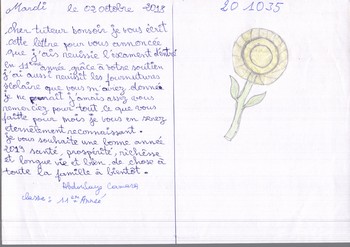 Mardi le 02 octobre 2018
201035
cher tuteur bonsoir je vous écrit
cette lettre pour vous annoncée
que j'ais reussie l'exament d'entré
en 11ème année grâce à votre soutien
j'ai aussi reuihit les fournutures
scolaire que vous m'aviez donnée
je ne j'amais assez vous
remerciez pour tout ce que vous
faitte pour moi je vous en serez
éternèlement reconnaissant.
je vous souhaite une bonne année
2019 santé, prospérité, richèsse
et longue vie et bien de chose à
toute la famille à bientôt.
Camara
classe: 11ème Année